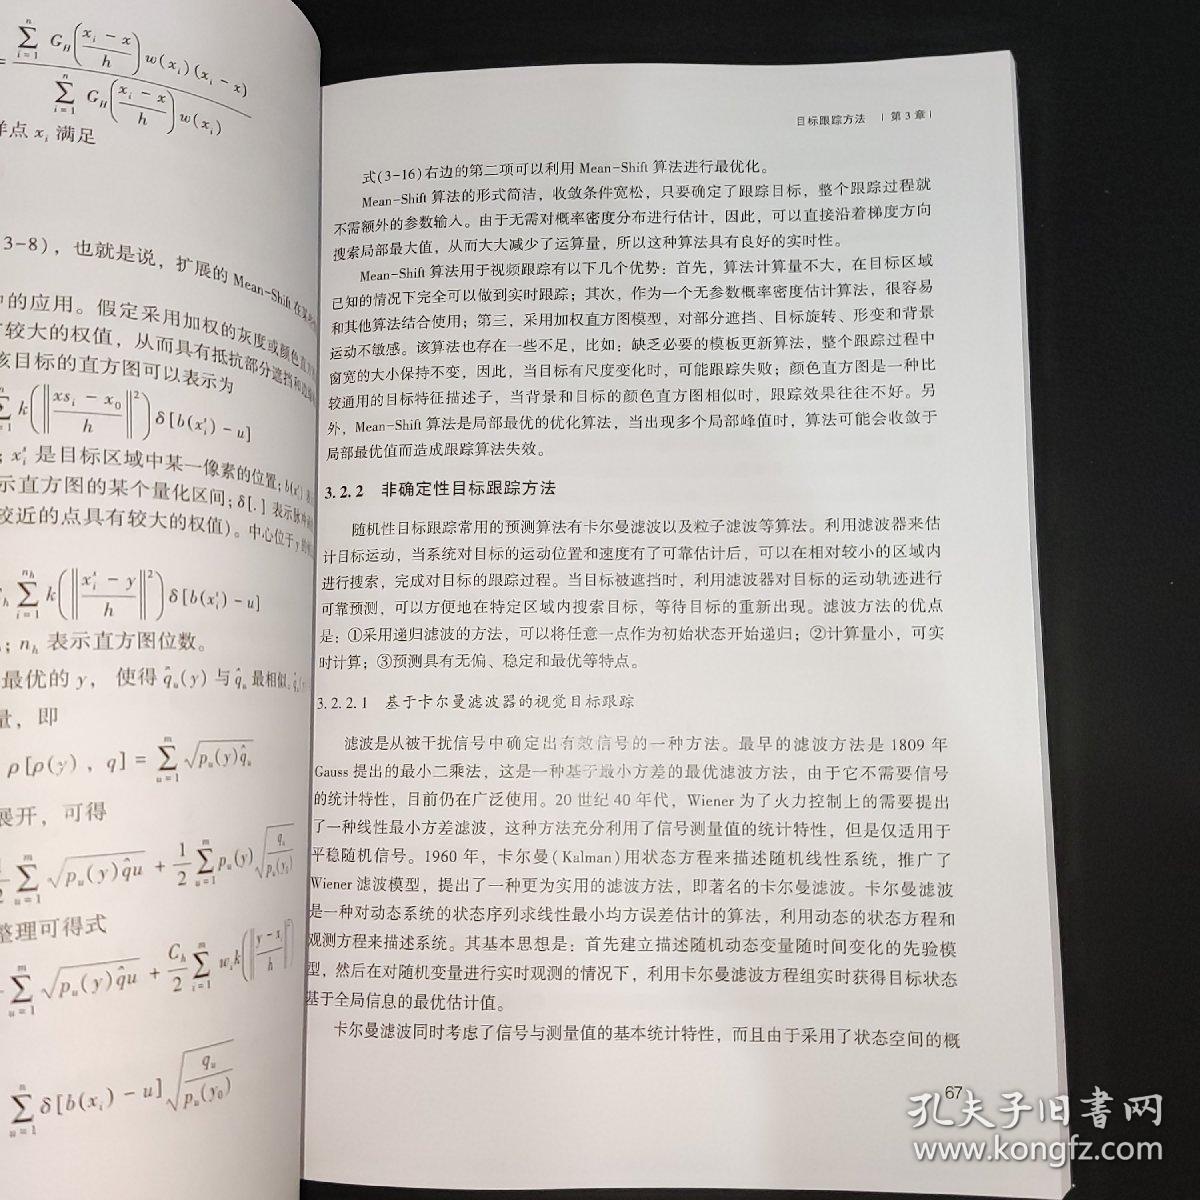 = \frac{\sum_{i=1}^{n} G_H\left(\frac{x_i - x}{h}\right) w(x_i)(x_i - x)}{\sum_{i=1}^{n} G_H\left(\frac{x_i - x}{h}\right) w(x_i)}
样点 x_i 满足
3-8)，也就是说，扩展的 Mean-Shift 在某
中的应用。假定采用加权的灰度或颜色直方
较大的权值，从而具有抵抗部分遮挡和边缘
该目标的直方图可以表示为
k\left(\left\|\frac{xs_i - x_0}{h}\right\|^2\right) δ[b(x_i^s) - u]
；x_i^s 是目标区域中某一像素的位置；b(x_i^s)
示直方图的某个量化区间；δ[.] 表示脉冲
较近的点具有较大的权值)。中心位于 y 的
\sum_{i=1}^{n_h} k\left(\left\|\frac{x_i^s - y}{h}\right\|^2\right) δ[b(x_i^s) - u]
；n_h 表示直方图位数。
最优的 y， 使得 \hat{q}_u(y) 与 \hat{q}_u 最相似。
量，即
ρ[ρ(y) , q] = \sum_{u=1}^{m} \sqrt{p_u(y)\hat{q}_u}
展开，可得
\sum_{u=1}^{m} \sqrt{p_u(y)\hat{q}u} + \frac{1}{2} \sum_{u=1}^{m} p_u(y) \sqrt{\frac{q_u}{p_u(y_0)}}
整理可得式
\sum_{u=1}^{m} \sqrt{p_u(y)\hat{q}u} + \frac{C_h}{2} \sum_{i=1}^{m} w_i k\left(\left\|\frac{y - x_i}{h}\right\|^2\right)
\sum_{u=1}^{n} δ[b(x_i) - u] \sqrt{\frac{q_u}{p_u(y_0)}}
目标跟踪方法 | 第 3 章 |
式(3-16)右边的第二项可以利用 Mean-Shift 算法进行最优化。
Mean-Shift 算法的形式简洁，收敛条件宽松，只要确定了跟踪目标，整个跟踪过程就
不需额外的参数输入。由于无需对概率密度分布进行估计，因此，可以直接沿着梯度方向
搜索局部最大值，从而大大减少了运算量，所以这种算法具有良好的实时性。
Mean-Shift 算法用于视频跟踪有以下几个优势：首先，算法计算量不大，在目标区域
已知的情况下完全可以做到实时跟踪；其次，作为一个无参数概率密度估计算法，很容易
和其他算法结合使用；第三，采用加权直方图模型，对部分遮挡、目标旋转、形变和背景
运动不敏感。该算法也存在一些不足，比如：缺乏必要的模板更新算法，整个跟踪过程中
窗宽的大小保持不变，因此，当目标有尺度变化时，可能跟踪失败；颜色直方图是一种比
较通用的目标特征描述子，当背景和目标的颜色直方图相似时，跟踪效果往往不好。另
外，Mean-Shift 算法是局部最优的优化算法，当出现多个局部峰值时，算法可能会收敛于
局部最优值而造成跟踪算法失效。
3.2.2 非确定性目标跟踪方法
随机性目标跟踪常用的预测算法有卡尔曼滤波以及粒子滤波等算法。利用滤波器来估
计目标运动，当系统对目标的运动位置和速度有了可靠估计后，可以在相对较小的区域内
进行搜索，完成对目标的跟踪过程。当目标被遮挡时，利用滤波器对目标的运动轨迹进行
可靠预测，可以方便地在特定区域内搜索目标，等待目标的重新出现。滤波方法的优点
是：①采用递归滤波的方法，可以将任意一点作为初始状态开始递归；②计算量小，可实
时计算；③预测具有无偏、稳定和最优等特点。
3.2.2.1 基于卡尔曼滤波器的视觉目标跟踪
滤波是从被干扰信号中确定出有效信号的一种方法。最早的滤波方法是 1809 年
Gauss 提出的最小二乘法，这是一种基于最小方差的最优滤波方法，由于它不需要信号
的统计特性，目前仍在广泛使用。20 世纪 40 年代，Wiener 为了火力控制上的需要提出
了一种线性最小方差滤波，这种方法充分利用了信号测量值的统计特性，但是仅适用于
平稳随机信号。1960 年，卡尔曼(Kalman)用状态方程来描述随机线性系统，推广了
Wiener 滤波模型，提出了一种更为实用的滤波方法，即著名的卡尔曼滤波。卡尔曼滤波
是一种对动态系统的状态序列求线性最小均方误差估计的算法，利用动态的状态方程和
观测方程来描述系统。其基本思想是：首先建立描述随机动态变量随时间变化的先验模
型，然后在对随机变量进行实时观测的情况下，利用卡尔曼滤波方程组实时获得目标状态
基于全局信息的最优估计值。
卡尔曼滤波同时考虑了信号与测量值的基本统计特性，而且由于采用了状态空间的概
67
孔夫子旧书网
www.kongfz.com